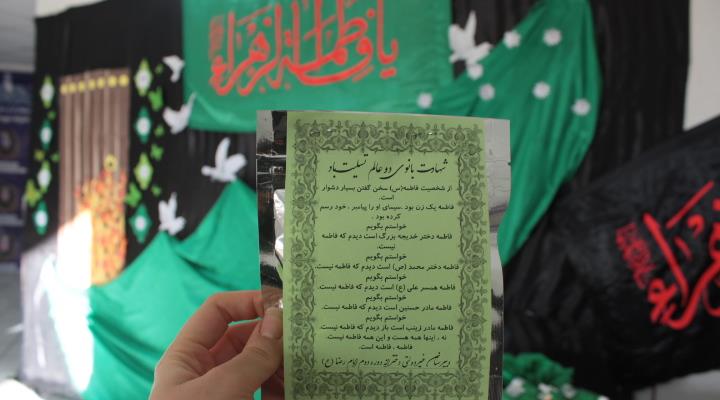 یا فاطمة الزهراء
شهادت بانوی دو عالم تسلیت باد
از شخصیت فاطمه(س) سخن گفتن بسیار دشوار
است.
فاطمه یک زن بود .سیمای او را پیامبر ، خود رسم
کرده بود .
خواستم بگویم
فاطمه دختر خدیجه بزرگ است دیدم که فاطمه
نیست.
خواستم بگویم
فاطمه دختر محمد (ص) است دیدم که فاطمه نیست.
خواستم بگویم
فاطمه همسر علی (ع) است دیدم که فاطمه نیست.
خواستم بگویم
فاطمه مادر حسنین است دیدم که فاطمه نیست.
خواستم بگویم
فاطمه مادر زینب است باز دیدم که فاطمه نیست.
نه ، اینها همه هست و این همه فاطمه نیست.
فاطمه ، فاطمه است.
دبیرستان غیردولتی دخترانه دوره دوم امام رضا (ع)